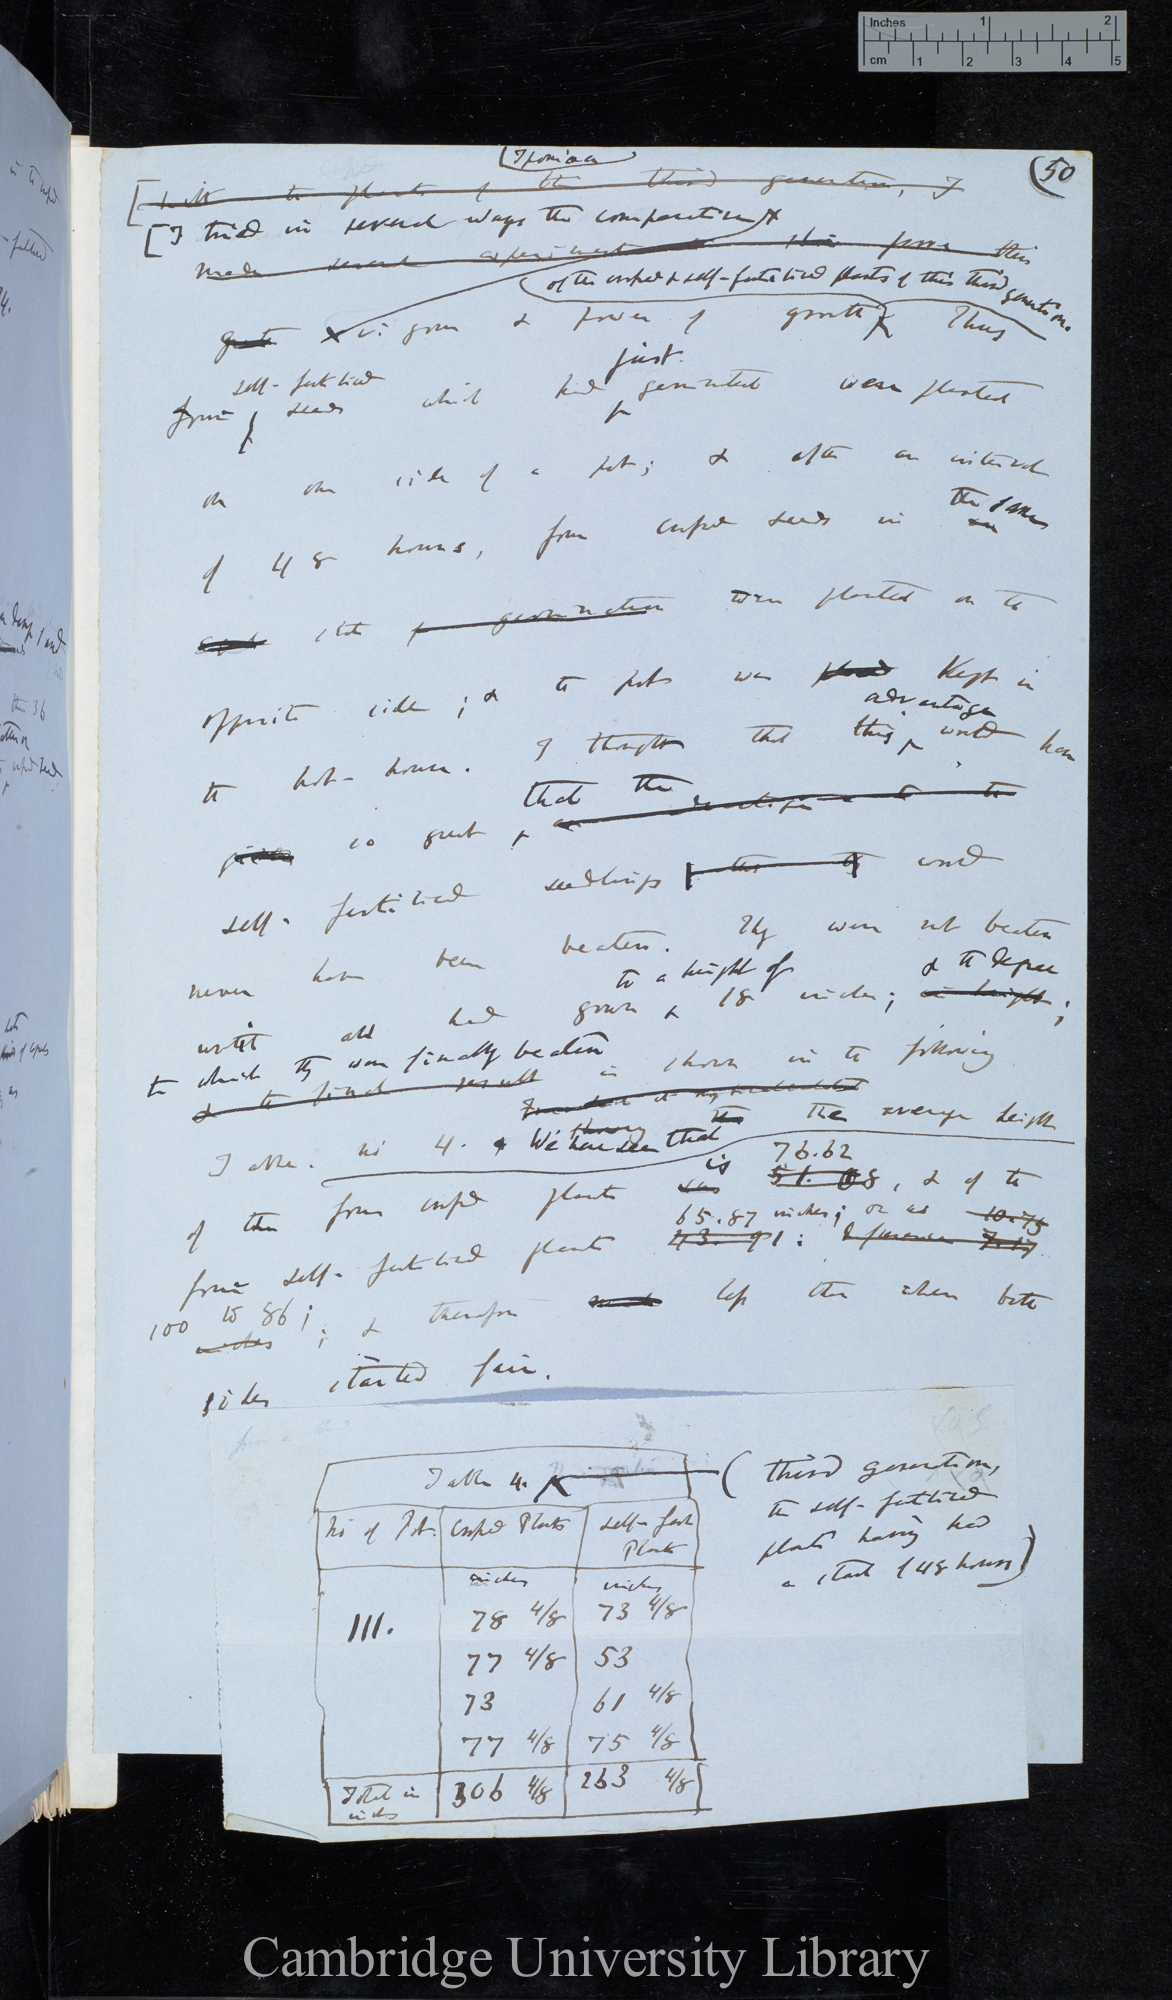 Inches 1 2
cm 1 2 3 4 5
(Ipomœa
(50
[With the plants of the third generation, I
[I tried in several ways the comparative
made several experiments
of the crossed & self-fertilised plants of this third generation.
vigour & power of growth Thus
self-fertilised just
four seeds which had germinated were planted
on one side of a pot; & after an interval
of 48 hours, four crossed seeds in the same
state of germination were planted on the
opposite side; & the pots was placed kept in
advantage
the hot-house. I thought that this would have
been so great that the
self-fertilised seedlings would
never have been beaten. They were not beaten
to a height of & the degree
until all had grown 18 inches; in height;
to which they were finally beaten
& the final result is shown in the following
Table. no 4. We have seen that the average height
is 76.62
of the four crossed plants was 51.08, & of the
65.87 inches; or as 10.75
four self-fertilised plants 43.91: difference
100 to 86;
inches; & therefore much less than when both
sides started fair.
Table 4. (third generation,
the self-fertilised
plants having had
a start of 48 hours)
No of Pot. Crossed Plants Self-fert Plants
inches inches
III. 78 4/8 73 4/8
77 4/8 53
73 61 4/8
77 4/8 75 4/8
Total in inches 306 4/8 263 4/8
Cambridge University Library